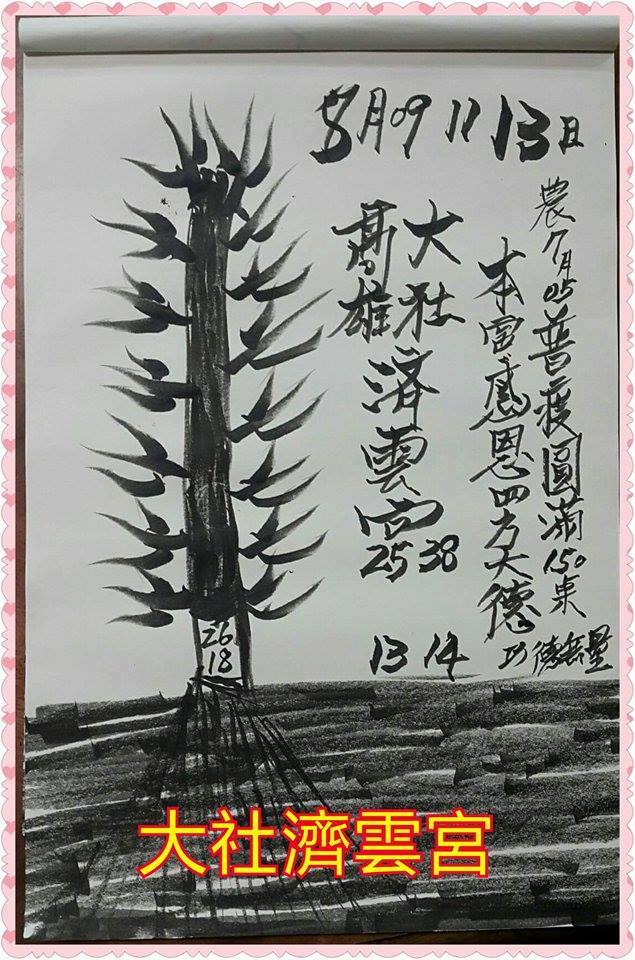 8月09 11 13日
農7月05普渡圓滿150桌
本宮感恩四方大德
功德無量
大社
高雄
濟雲宮
25 38
13 14
26
18
大社濟雲宮